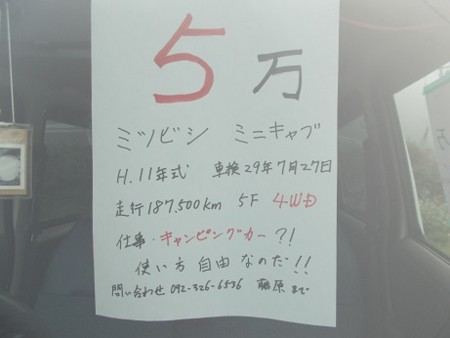 5万
ミツビシ ミニキャブ
H.11年式 車検29年7月27日
走行187,500km 5F 4WD
仕事・キャンピングカー?!
使い方自由なのだ!!
問い合わせ 092-326-6536 藤原まで